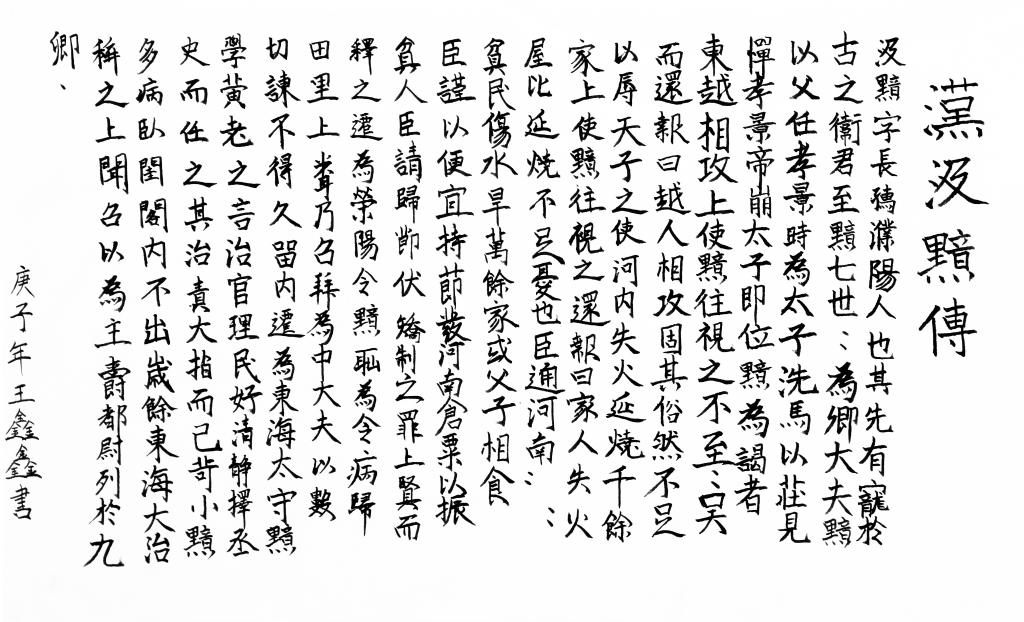 漢汲黯傳
汲黯字長孺濮陽人也其先有寵於
古之衞君至黯七世:為卿大夫黯
以父任孝景時為太子洗馬以莊見
憚孝景帝崩太子即位黯為謁者
東越相攻上使黯往視之不至:吴
而還報曰越人相攻固其俗然不足
以辱天子之使河内失火延燒千餘
家上使黯往視之還報曰家人失火
屋比延燒不足憂也臣過河南::
貧民傷水旱萬餘家或父子相食
臣謹以便宜持節發河南倉粟以振
貧人臣請歸節伏矯制之罪上賢而
釋之遷為滎陽令黯恥為令病歸
田里上聞乃召拜為中大夫以數
切諫不得久留内遷為東海太守黯
學黃老之言治官理民好清静擇丞
史而任之其治責大指而已苛小黯
多病臥閨閤内不出歲餘東海大治
稱之上聞召以為主爵都尉列於九
卿、
庚子年王鑫鑫書